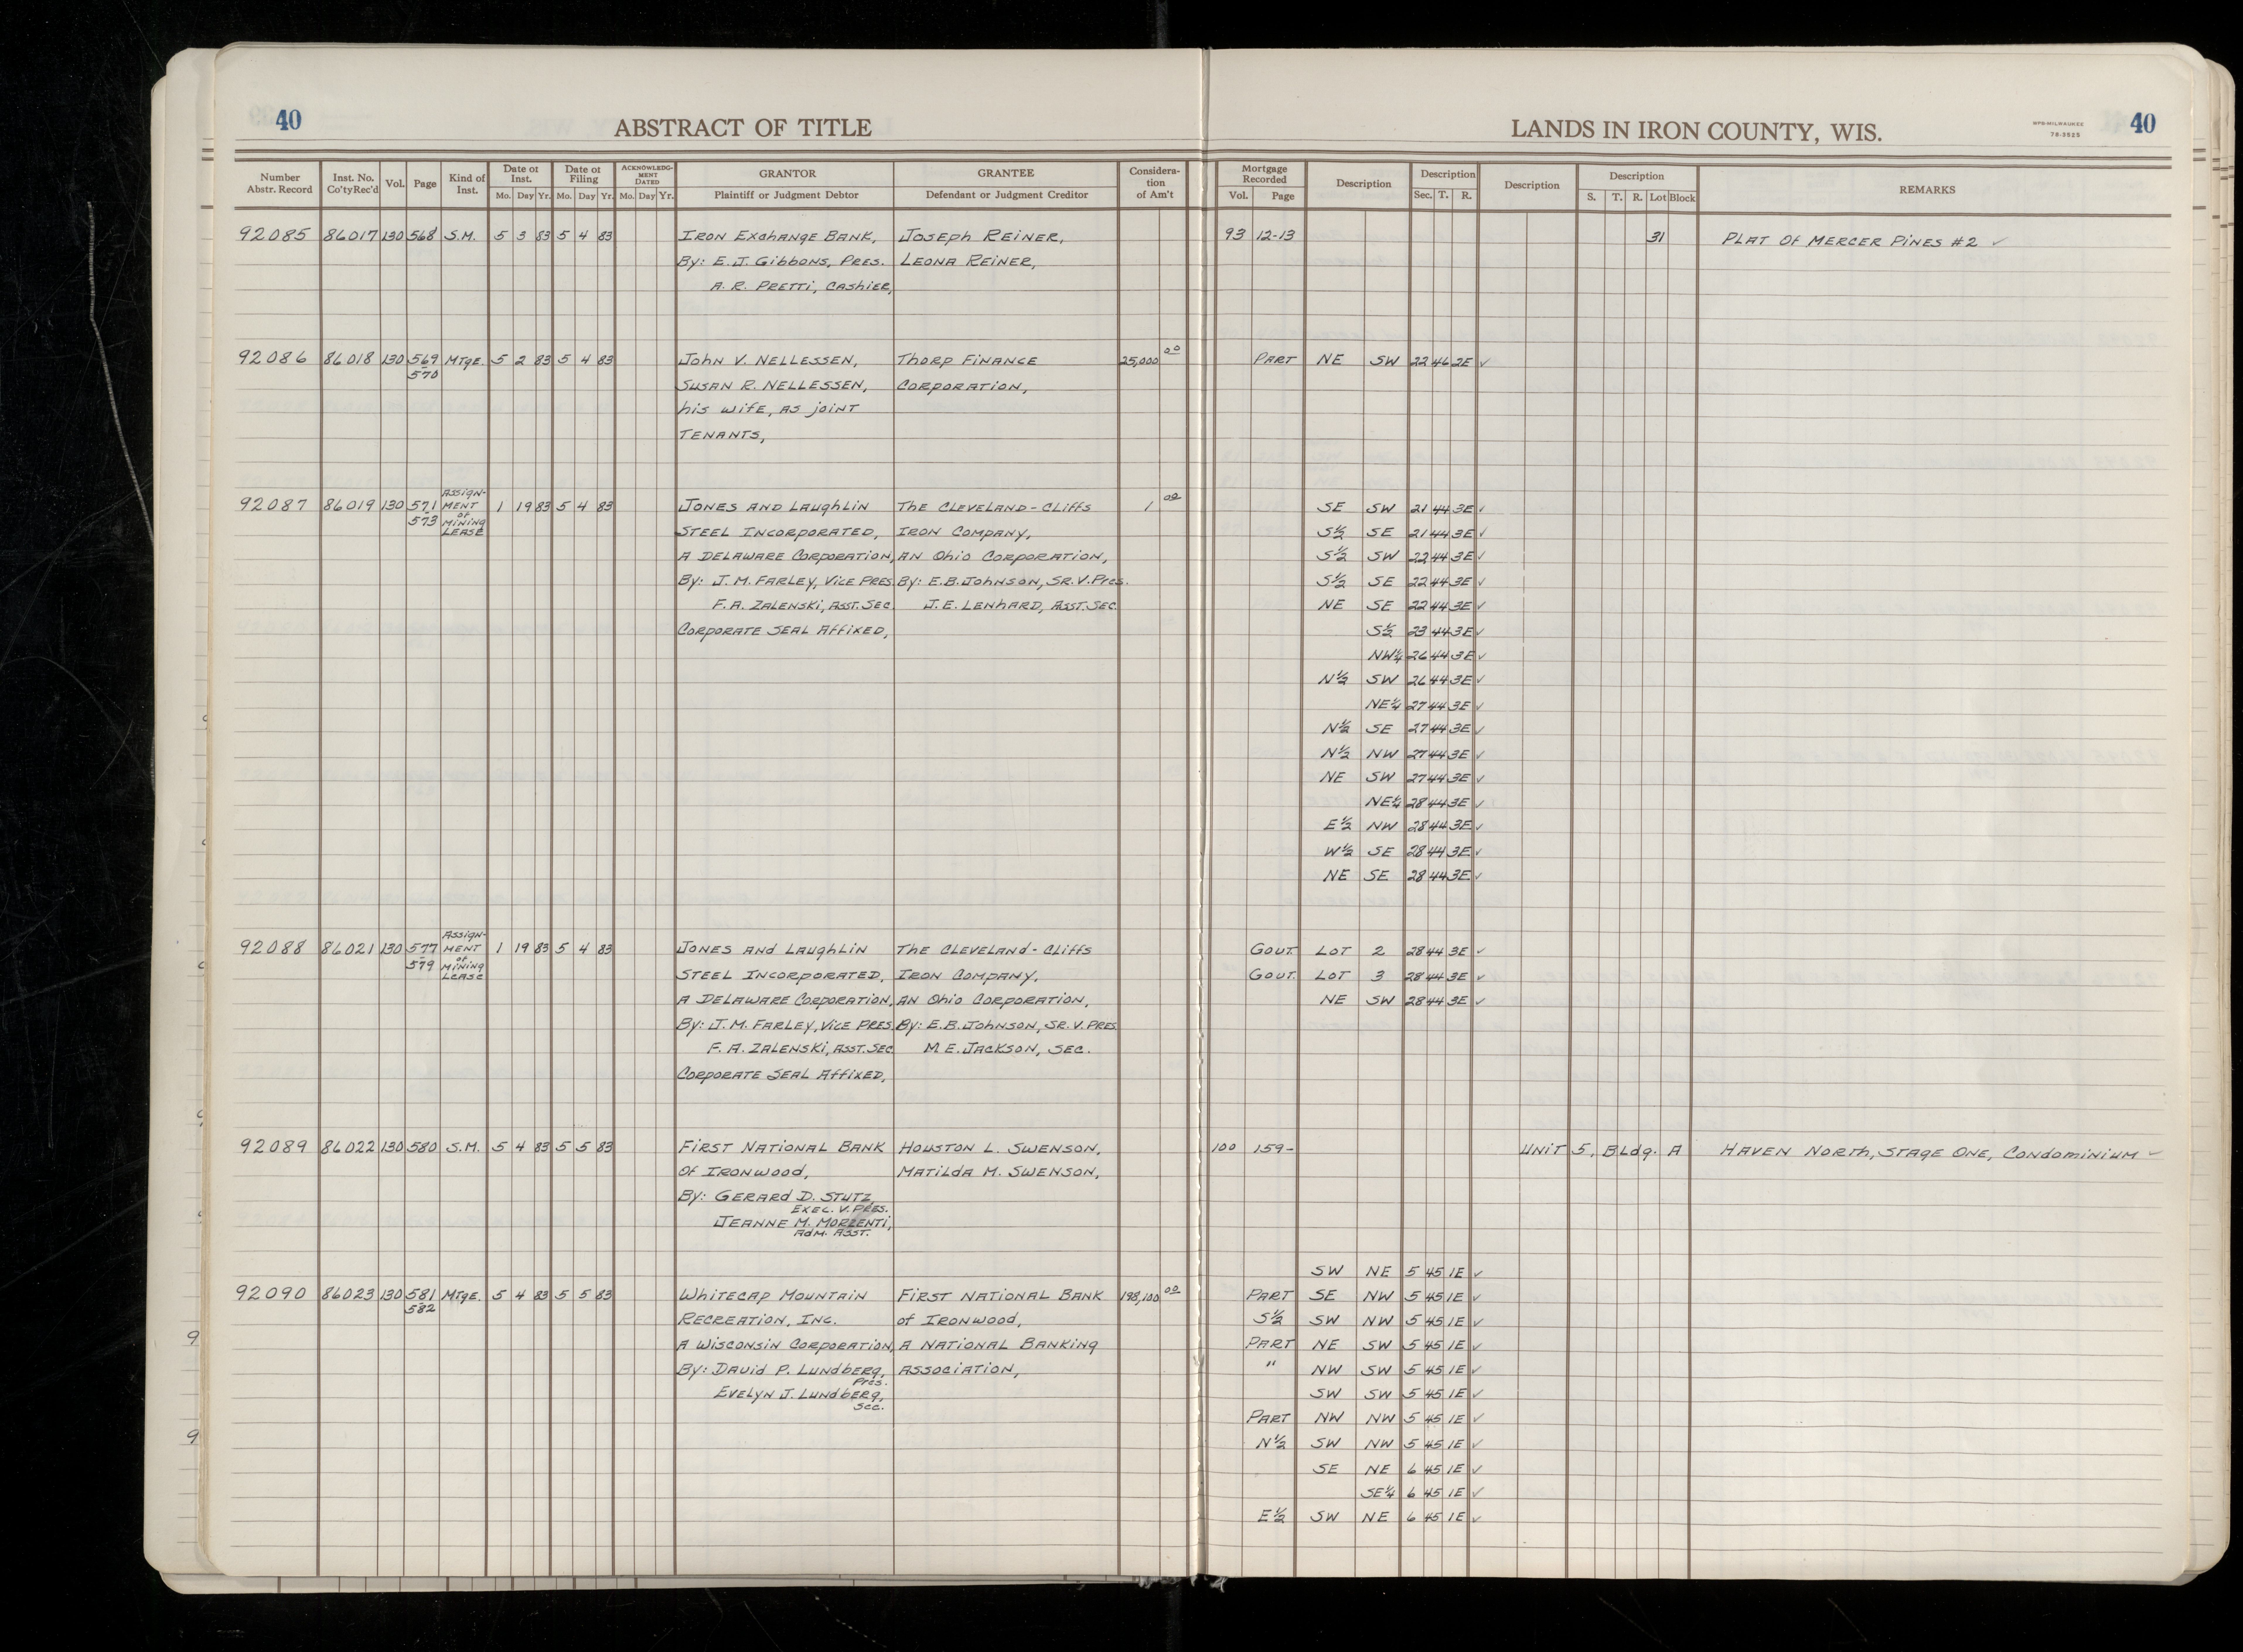 40 ABSTRACT OF TITLE LANDS IN IRON COUNTY, WIS. WPB-MILWAUKEE 78-3525 40
Number Abstr. Record Inst. No. Co'ty Rec'd Vol. Page Kind of Inst. Date of Inst. Date of Filing ACKNOWLEDGMENT DATED GRANTOR GRANTEE Consideration of Am't Mortgage Recorded Description Description Description Description REMARKS
Mo. Day Yr. Mo. Day Yr. Mo. Day Yr. Plaintiff or Judgment Debtor Defendant or Judgment Creditor Vol. Page Sec. T. R. S. T. R. Lot Block
92085 86017 130 568 S.M. 5 3 83 5 4 83 Iron Exchange Bank, Joseph Reiner, 93 12-13 31 Plat of Mercer Pines #2 ✓
By: E.J. Gibbons, Pres. Leona Reiner,
A. R. Pretti, Cashier,
92086 86018 130 569 - 570 Mtge. 5 2 83 5 4 83 John V. Nellessen, Thorp Finance 25,000 00 Part NE SW 22 46 2E ✓
Susan R. Nellessen, Corporation,
his wife, as joint
tenants,
92087 86019 130 571 - 573 Assignment of Mining Lease 1 19 83 5 4 83 Jones and Laughlin The Cleveland-Cliffs 1 00 SE SW 21 44 3E ✓
Steel Incorporated, Iron Company, S½ SE 21 44 3E ✓
A Delaware Corporation, An Ohio Corporation, S½ SW 22 44 3E ✓
By: J. M. Farley, Vice Pres. By: E.B. Johnson, Sr. V. Pres. S½ SE 22 44 3E ✓
F. A. Zalenski, Asst. Sec. J. E. Lenhard, Asst. Sec. NE SE 22 44 3E ✓
Corporate Seal Affixed, S½ 23 44 3E ✓
NW¼ 26 44 3E ✓
N½ SW 26 44 3E ✓
NE¼ 27 44 3E ✓
N½ SE 27 44 3E ✓
N½ NW 27 44 3E ✓
NE SW 27 44 3E ✓
NE¼ 28 44 3E ✓
E½ NW 28 44 3E ✓
W½ SE 28 44 3E ✓
NE SE 28 44 3E ✓
92088 86021 130 577 - 579 Assignment of Mining Lease 1 19 83 5 4 83 Jones and Laughlin The Cleveland-Cliffs Govt. Lot 2 28 44 3E ✓
Steel Incorporated, Iron Company, Govt. Lot 3 28 44 3E ✓
A Delaware Corporation, An Ohio Corporation, NE SW 28 44 3E ✓
By: J.M. Farley, Vice Pres. By: E.B. Johnson, Sr. V. Pres.
F. A. Zalenski, Asst. Sec. M E. Jackson, Sec.
Corporate Seal Affixed,
92089 86022 130 580 S.M. 5 4 83 5 5 83 First National Bank Houston L. Swenson, 100 159- Unit 5, Bldg. A Haven North, Stage One, Condominium ✓
of Ironwood, Matilda M. Swenson,
By: Gerard D. Stutz,
Exec. V. Pres.
Jeanne M. Morzenti,
Adm. Asst.
SW NE 5 45 1E ✓
92090 86023 130 581 - 582 Mtge. 5 4 83 5 5 83 Whitecap Mountain First National Bank 198,100 00 Part SE NW 5 45 1E ✓
Recreation, Inc. of Ironwood, S½ SW NW 5 45 1E ✓
A Wisconsin Corporation, A National Banking Part NE SW 5 45 1E ✓
By: David P. Lundberg, Association, " NW SW 5 45 1E ✓
Pres.
Evelyn J. Lundberg, SW SW 5 45 1E ✓
Sec.
Part NW NW 5 45 1E ✓
N½ SW NW 5 45 1E ✓
SE NE 6 45 1E ✓
SE¼ 6 45 1E ✓
E½ SW NE 6 45 1E ✓